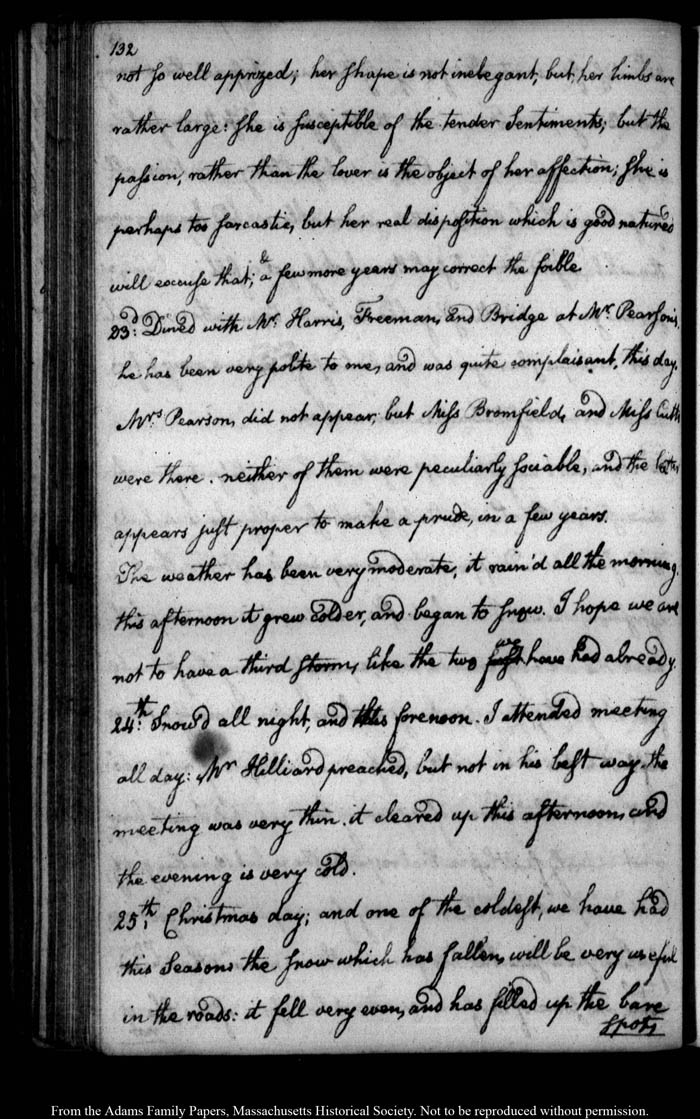 132
not so well apprized; her shape is not inelegant, but, her limbs are
rather large: she is susceptible of the tender Sentiments; but the
passion, rather than the lover is the object of her affection; She is
perhaps too sarcastic, but her real disposition which is good natured
will excuse that; & a few more years may correct the foible
23d: Dined with Mr. Harris, Freeman, and Bridge at Mr. Pearson's,
he has been very polite to me, and was quite complaisant, this day.
Mrs. Pearson, did not appear; but Miss Bromfield, and Miss Cutts
were there. neither of them were peculiarly sociable, and the latter
appears just proper to make a prude, in a few years.
The weather has been very moderate, it rain'd all the morning.
this afternoon it grew colder, and began to snow. I hope we are
not to have a third storm, like the two we have had already.
24th: Snow'd all night, and this forenoon. I attended meeting
all day: Mr Hilliard preached, but not in his best way. the
meeting was very thin. it cleared up this afternoon, and
the evening is very cold.
25th; Christmas day; and one of the coldest, we have had
this Season. the snow which has fallen, will be very useful
in the roads: it fell very even, and has filled up the bare
spots
From the Adams Family Papers, Massachusetts Historical Society. Not to be reproduced without permission.